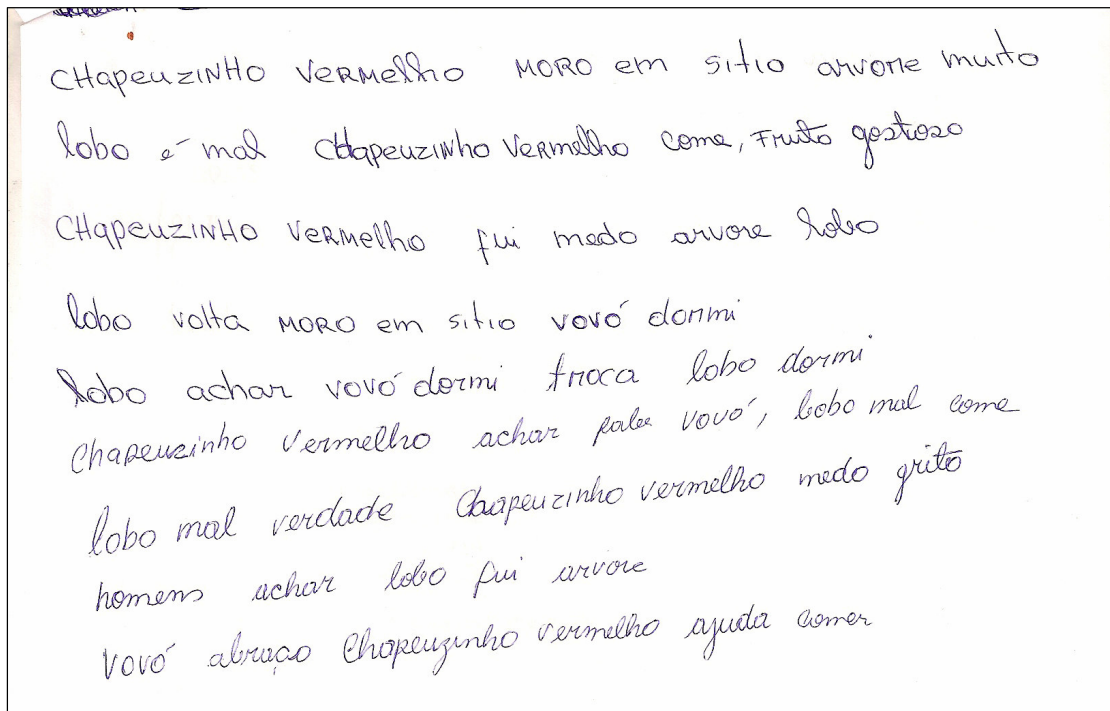 CHapeuzINHO VERMelho MORO em sitio arvore muito
lobo é mal CHapeuzinho Vermelho come, Fruto gostoso
CHapeuzINHO VERMelho fui medo arvore lobo
lobo volta MORO em sitio vovó dormi
lobo achar vovó dormi troca lobo dormi
Chapeuzinho Vermelho achar vovó, lobo mal come
lobo mal verdade Chapeuzinho vermelho medo grito
homens achar lobo fui arvore
vovó abraço Chapeuzinho vermelho ajuda comer